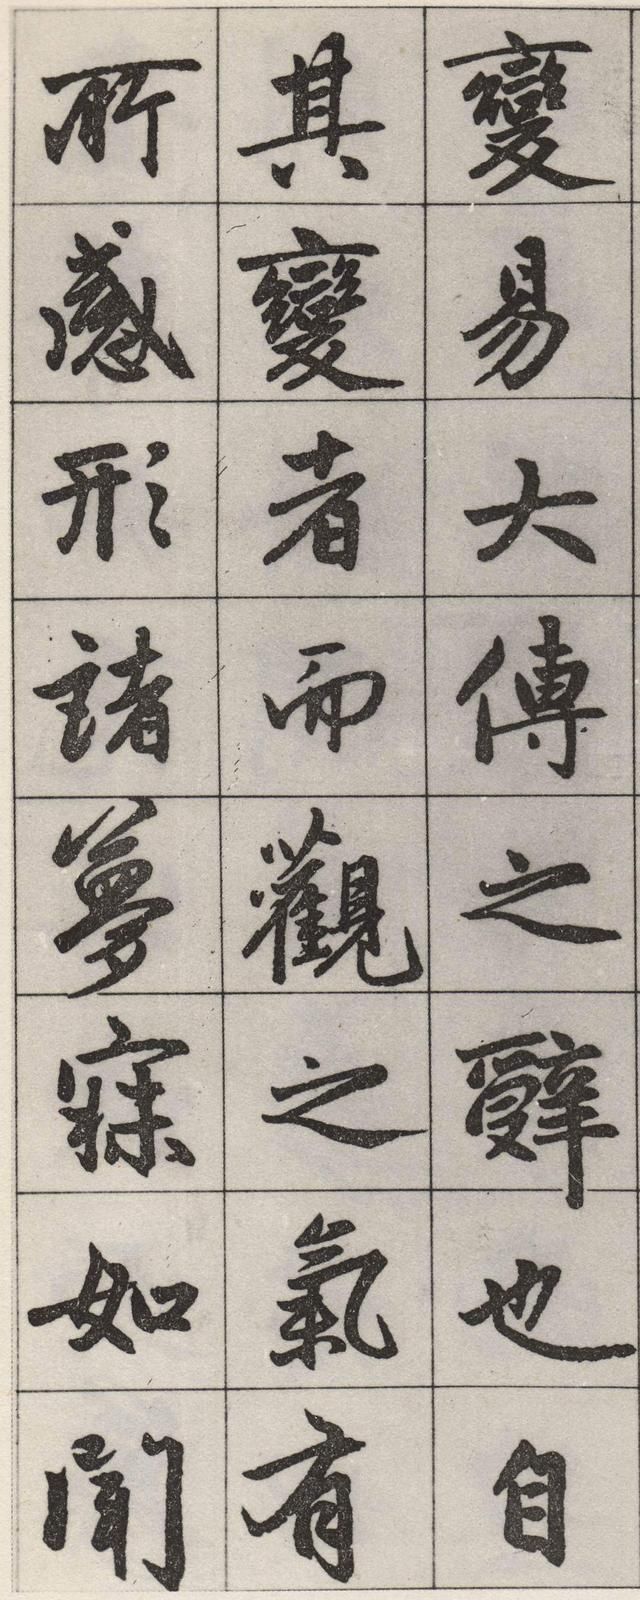 變易大傳之辭也自
其變者而觀之氣有
所感形諸夢寐如聞